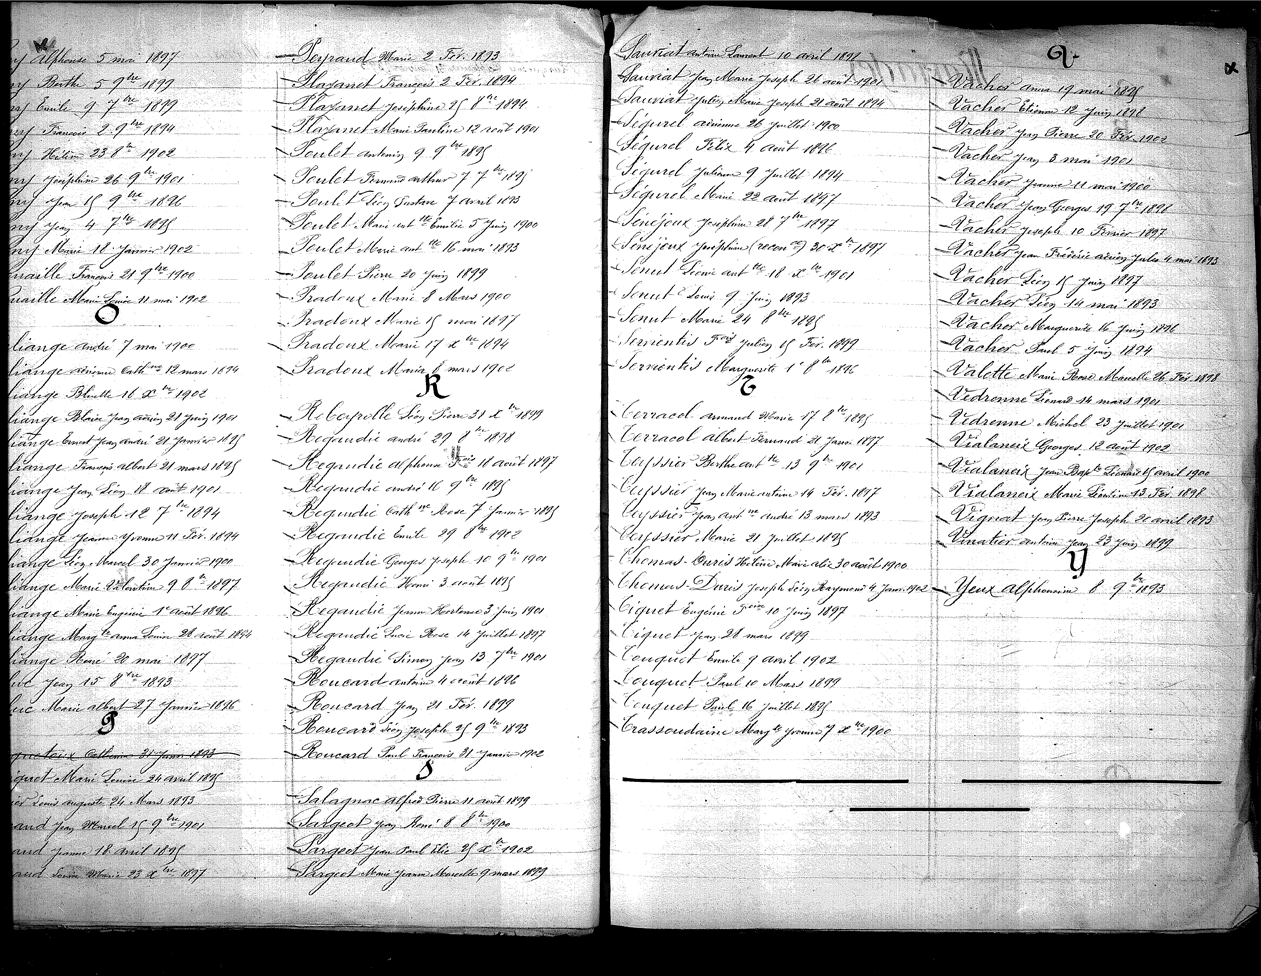 ny Alphonse 5 mai 1897
ny Berthe 5 9bre 1899
ny Emile 9 7bre 1899
ny François 2 9bre 1894
ny Hélène 23 8bre 1902
ny Joséphine 26 9bre 1901
ny Jean 15 9bre 1896
ny Jean 4 7bre 1895
ny Marie 18 Janvier 1902
naille François 21 9bre 1900
naille Marie Louise 11 mai 1902
O
liange andré 7 mai 1900
liange adrienne Cathne 12 mars 1894
liange 16 xbre 1902
liange Blaise Jean adrien 21 Juin 1901
liange Ernest Jean andré 21 Janvier 1895
liange François albert 21 mars 1895
liange Jean Léon 18 août 1901
liange Joseph 12 7bre 1894
liange Jeanne Yvonne 11 Fév. 1894
liange Léon Marcel 30 Janvier 1900
liange Marie Valentine 9 8bre 1897
liange Marie Eugénie 1er août 1896
liange Margte anna Louise 28 août 1894
liange René 20 mai 1897
Jean 15 8bre 1893
Marie albert 27 Janvier 1896
P
Catherine 31 Janv 1893
Marie Louise 24 avril 1895
Louis auguste 24 Mars 1893
and Jean Marcel 15 9bre 1901
and Jeanne 18 avril 1895
and Louise Marie 23 xbre 1897
Peyraud Marie 2 Fév. 1893
Plazanet François 2 Fév. 1894
Plazanet Joséphine 25 8bre 1894
Plazanet Marie Pauline 12 août 1901
Poulet antonin 9 9bre 1895
Poulet Fernand arthur 7 7bre 1895
Poulet Léon Gustave 7 avril 1893
Poulet Marie antte Emilie 5 Juin 1900
Poulet Marie antte 16 mai 1893
Poulet Pierre 20 Juin 1899
Pradoux Marie 8 Mars 1900
Pradoux Marie 15 mai 1897
Pradoux Marie 17 xbre 1894
Pradoux Marie 6 mars 1902
R
Robeyrolle Léon Pierre 31 xbre 1899
Regaudie andré 29 8bre 1898
Regaudie alphonse Fois 18 août 1897
Regaudie andré 16 9bre 1895
Regaudie Cathne Rose 7 Janvier 1895
Regaudie Emile 29 8bre 1902
Regaudie Georges Joseph 10 9bre 1901
Regaudie Henri 3 août 1895
Regaudie Jeanne Hortense 3 Juin 1901
Regaudie Lucie Rose 14 Juillet 1897
Regaudie Simon Jean 13 7bre 1901
Roucard antoine 4 août 1896
Roucard Jean 21 Fév. 1899
Roucard Léon Joseph 25 9bre 1893
Roucard Paul François 21 Janvier 1902
S
Salagnac alfred Pierre 11 août 1899
Sargeot Jean René 8 8bre 1900
Sargeot Jean Paul Elie 25 xbre 1902
Sargeot Marie Jeanne Marcelle 9 mars 1899
Sauviat antoine Laurent 10 avril 1895
Sauviat Jean Marie Joseph 26 août 1901
Sauviat Julien Marie Joseph 21 août 1894
Ségurel adrienne 26 Juillet 1900
Ségurel Félix 4 août 1896
Ségurel Julienne 9 Juillet 1894
Ségurel Marie 22 août 1897
Sénéjoux Joséphine 28 7bre 1897
Sénéjoux Joséphine 30 xbre 1897
Sonut Léonie antte 18 xbre 1901
Sonut Louis 9 Juin 1893
Sonut Marie 24 8bre 1895
Serrientis Fois Julien 15 Fév. 1899
Serrientis Marguerite 1er 8bre 1896
T
Terracol armand Marie 17 8bre 1895
Terracol albert Fernand 21 Janv. 1897
Teyssier Berthe antte 13 9bre 1901
Teyssier Jean Marie antoine 14 Fév. 1897
Teyssier Jean antne andré 13 mars 1893
Teyssier Marie 21 Juillet 1895
Thomas-Duris Hélène Marie alice 30 août 1900
Thomas-Duris Joseph Léon Raymond 4 Janv. 1902
Tiquet Eugénie Foise 10 Juin 1897
Tiquet Jean 28 mars 1899
Touquet Emile 9 avril 1902
Touquet Paul 10 Mars 1899
Touquet Paul 16 Juillet 1895
Trassoudaine Margte Yvonne 7 xbre 1900
V
Vacher anna 19 mai 1895
Vacher Etienne 12 Juin 1898
Vacher Jean Pierre 20 Fév. 1902
Vacher Jean 3 mai 1901
Vacher Jeanne 11 mai 1900
Vacher Jean Georges 19 7bre 1896
Vacher Joseph 10 Février 1897
Vacher Jean Frédéric adrien Jules 4 mai 1893
Vacher Léon 15 Juin 1897
Vacher Léon 14 mai 1893
Vacher Marguerite 16 Juin 1896
Vacher Paul 5 Juin 1894
Valette Marie Rose Marcelle 26 Fév. 1898
Vedrenne Léonard 14 mars 1901
Vedrenne Michel 23 Juillet 1901
Vialaneix Georges 12 août 1902
Vialaneix Jean Bapte Léonard 15 avril 1900
Vialaneix Marie Léontine 13 Fév. 1898
Vignat Jean Pierre Joseph 20 avril 1893
Vinatier antoine Jean 23 Juin 1899
Y
Yeux alphonsine 8 9bre 1893